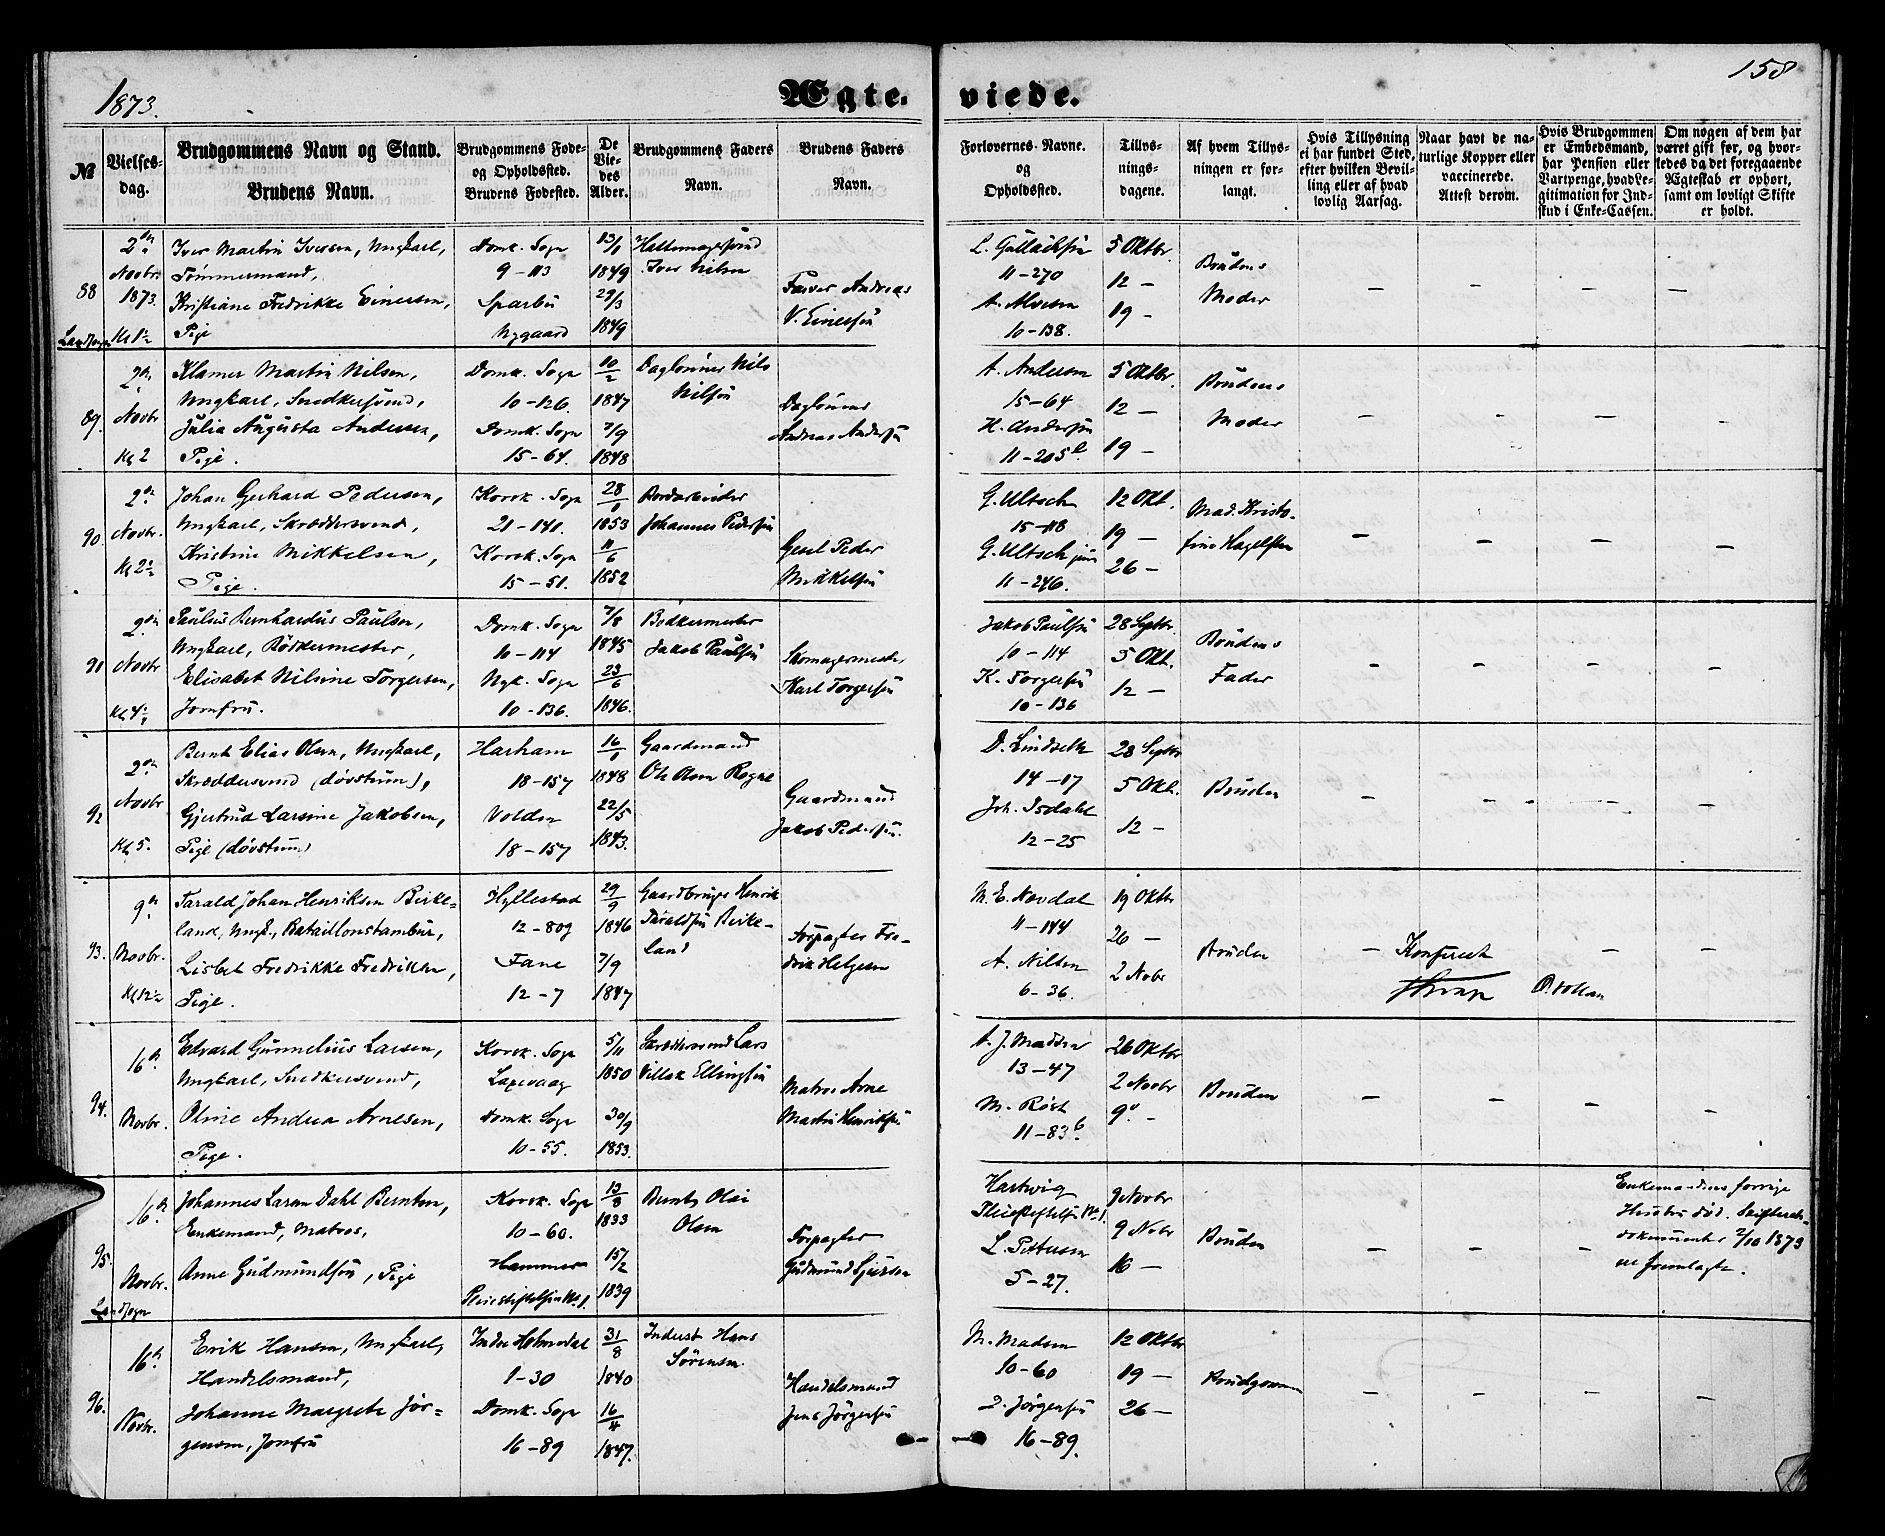 1873.
Ægte-
viede.
158
№
Vielses-
dag.
Brudgommens Navn og Stand.
Brudens Navn.
Brudgommens Føde-
og Opholdssted.
Brudens Fødested.
De
Vie-
des
Alder.
Brudgommens Faders
Navn.
Brudens Faders
Navn.
Forlovernes Navne.
og
Opholdssted.
Tillys-
nings-
dagene.
Af hvem Tillys-
ningen er for-
langt.
Hvis Tillysning
ei har fundet Sted,
efter hvilken Bevil-
ling eller af hvad
lovlig Aarsag.
Naar havt de na-
turlige Kopper eller
vaccinerede.
Attest derom.
Hvis Brudgommen
er Embedsmand,
har Pension eller
Vartpenge, hvad Le-
gitimation for Ind-
skud i Enke-Cassen.
Om nogen af dem har
været gift før, og hvor-
ledes da det foregaaende
Ægteskab er ophørt,
samt om lovligt Skifte
er holdt.
88
Landsogn
2den
Novbr
1873.
Kl 1½
Iver Martin Iversen, Ungkarl,
Tømmermand,
Kristiane Fredrikke Einersen,
Pige
Domk. Sogn
9-113
Sparbu
Nygaard
13/1
1849
29/3
1849
Hattemagersvend
Iver Nilsen
Farver Andreas
V. Einersen
11-270
A. Alversen
10-138.
5 Oktbr.
12 —
19 —
Brudens
Moder
89.
2den
Novbr
Kl 2
Klamer Martin Nilsen,
Ungkarl, Snedkersvend,
Julia Augusta Andersen,
Pige.
Domk. Sogn
10-126.
Domk. Sogn
15-64.
10/2
1847
7/9
1848
Daglønner Nils
Nilsen
Daglønner
Andreas Andersen
A. Andersen
15-64
H. Andersen
11-205
5 Oktbr.
12 —
19 —
Brudens
Moder
90.
2den
Novbr.
Kl 2½
Johan Gerhard Pedersen,
Ungkarl, Skræddersvend,
Kristine Mikkelsen,
Pige.
Korsk. Sogn
21-141.
Korsk. Sogn
15-51.
28/1
1853
11/6
1852
Bordarbeider
Johannes Pedersen
Gesel Peder
Mikkelsen
G. Ultsch
15-118
G. Ultsch jun
11-246.
12 Okt.
19 —
26 —
Mad. Kristo-
fine Hagelsten
91
2den
Novbr
Kl 4½
Paulus Bernhardus Paulsen,
Ungkarl, Bødkermester,
Elisabet Nilsine Torgersen,
Jomfru.
Domk. Sogn
10-114
Nyk. Sogn
10-136.
7/8
1845
23/6
1846.
Bødkermester
Jakob Paulsen
Skomagermester
Karl Torgersen
Jakob Paulsen
10-114
K. Torgersen
10-136
28 Septbr.
5 Okt.
12 —
Brudens
Fader
92
2den
Novbr
Kl 5.
Bernt Elias Olsen, Ungkarl,
Skræddersvend (døvstum),
Gjertrud Larsine Jakobsen,
Pige (døvstum)
Harham
18-157
Volden
18-157
16/1
1848
22/5
1843.
Gaardmand
Ole Olsen Rogne
Gaardmand
Jakob Pedersen.
D. Lindseth
14-17
Joh. Isdahl
12-25
28 Septbr
5 Okt.
12 —
Bruden
93.
9de
Novbr.
Kl 12½
Tarald Johan Henriksen Birke-
land, Ungk., Bataillonstambur,
Lisbet Fredrikke Fredriksen,
Pige.
Hyllestad
12-809
Fane
12-7
29/9
1846
7/9
1847
Gaardbruger Henrik
Taraldsen Birke-
land
Forpagter Fre-
drik Helgesen
M. E. Nordal
11-144
A. Nilsen
6-36.
19 Oktbr
26 —
2 Novbr
Bruden
94.
16de
Novbr.
Edvard Gunnelius Larsen,
Ungkarl, Snedkersvend,
Oline Andrea Arnesen,
Pige.
Korsk. Sogn
Laxevaag
Domk. Sogn
10-55.
5/11
1850
30/9
1853.
Skræddersvend Lars
Villak Ellingsen
Matros Arne
Martin Henriksen
A. J. Madsen
13-47
M. Röst
11-83b.
26 Oktbr
2 Novbr
9 —
Bruden
95.
Landsogn
16de
Novbr.
Johannes Larsen Dahl Berntsen,
Enkemand, Matros,
Anne Gudmundsen, Pige
Korsk. Sogn
10-60.
Hammer
Pleiestiftelsen No 1.
13/8
1833
15/2
1839
Bernts Olai
Olsen
Forpagter
Gudmund Sjursen
Hartwig
Pleiestiftelsen No 1.
L. Pettersen
5-27.
9 Novbr
9 Nobr
16 —
Bruden
Enkemandens forrige
Hustru død. Skifterets-
dokumenter 2/10 1873
er fremlagte.
96.
16de
Novbr.
Erik Hansen, Ungkarl,
Handelsmand,
Johanne Margrete Jør-
gensen, Jomfru
Indre Holmedal
1-30
Domk. Sogn
16-89
31/8
1840
16/4
1847.
Inderst Hans
Sørensen.
Handelsmand
Jens Jørgensen
M. Madsen
10-60
J. Jørgensen
16-89.
12 Oktbr
19 —
26 —
Brudgommen